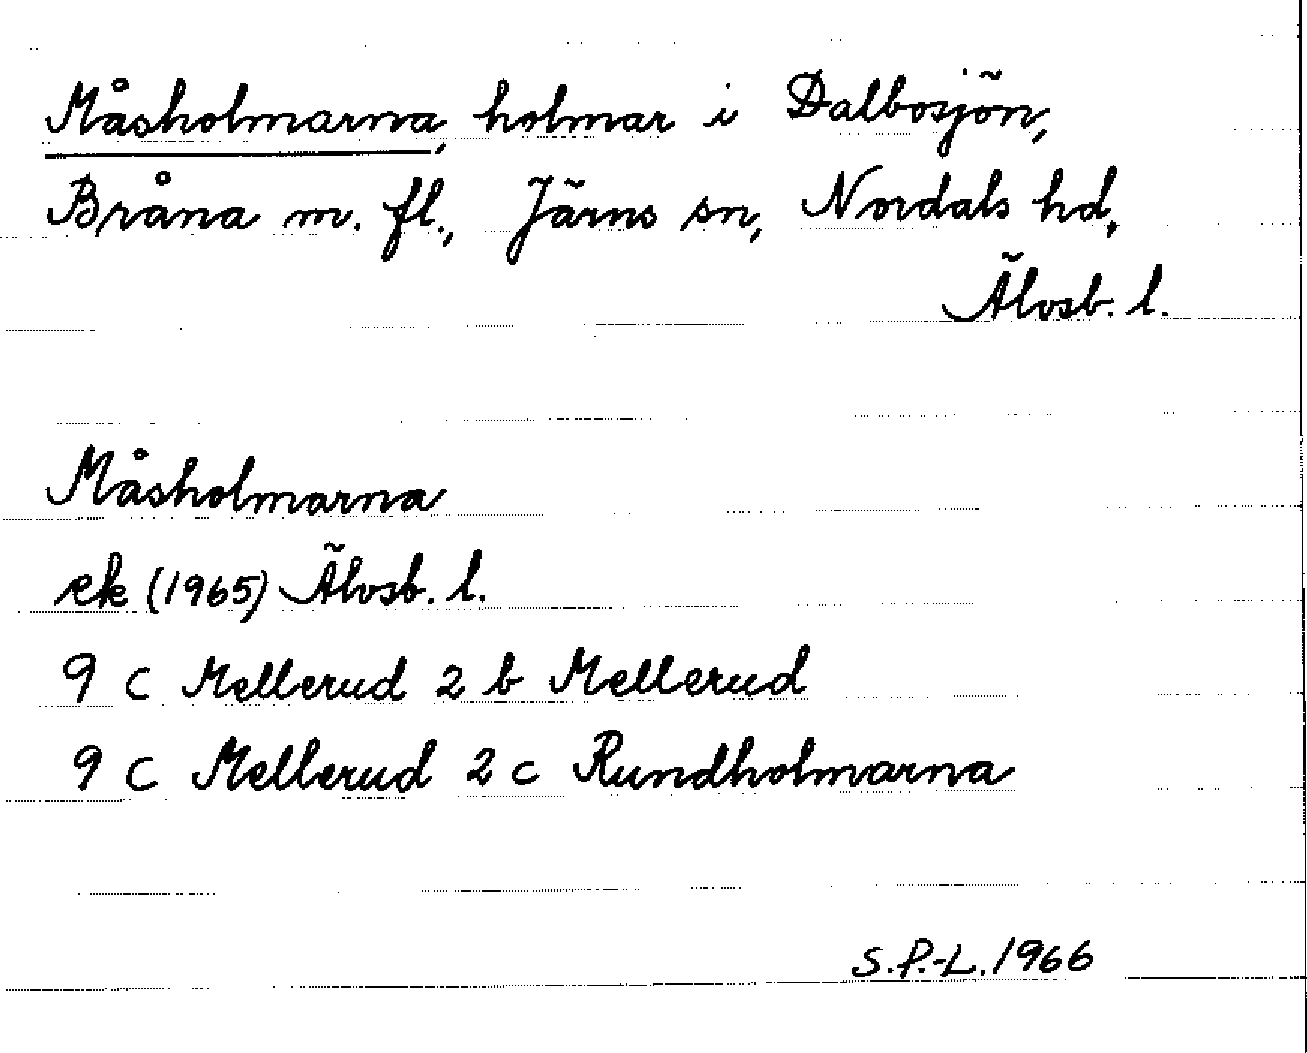 Måsholmarna, holmar i Dalbosjön,
Bråna m. fl., Järns sn, Nordals hd,
Älvsb. l.
Måsholmarna
ek (1965) Älvsb. l.
9 C Mellerud 2 b Mellerud
9 C Mellerud 2 c Rundholmarna
S.P.-L. 1966